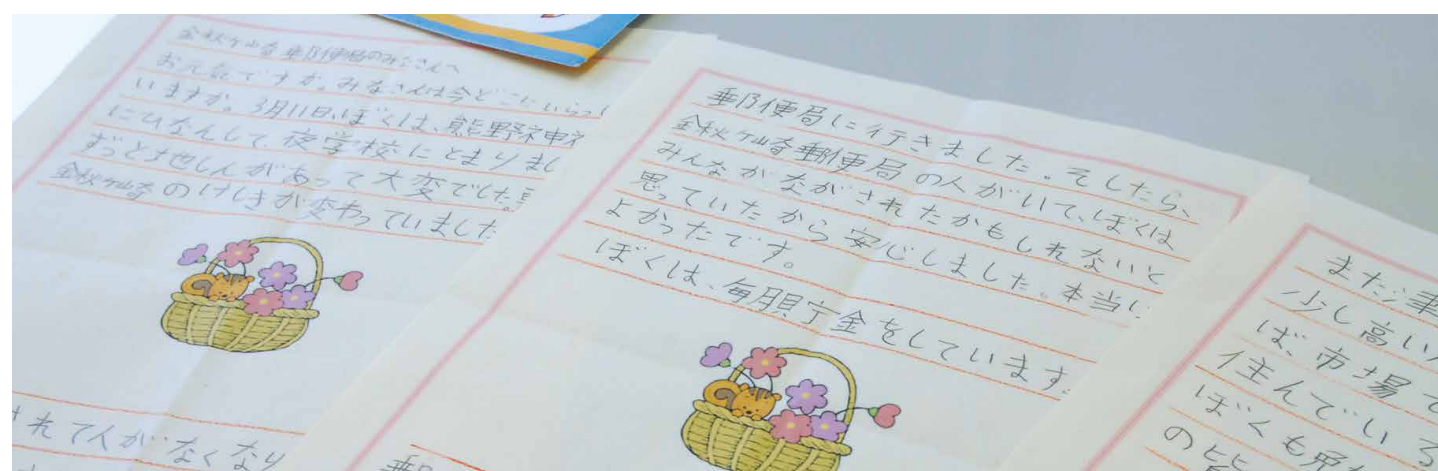 金秋ケ崎郵便局のみなさんへ
お元気ですか。みなさんは今どこにいらっし
いますか。3月11日、ぼくは、熊野神社
にひなんして、夜学校にとまりまし
ずっと地しんがあって大変でした。
金秋ケ崎のけしきが変わっていました
されて人がなくなり
郵便局に行きました。そしたら、
金秋ケ崎郵便局の人がいて、ぼくは
みんながながされたかもしれないと
思っていたから安心しました。本当に
よかったです。
ぼくは、毎月貯金をしています。
郵
また事
少し高い
ば、市場で
住んでいる
ぼくも
の皆